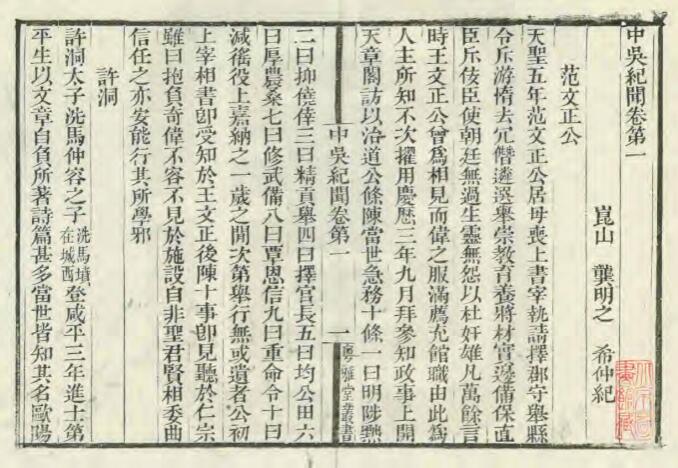 中吳紀聞卷第一
崑山 龔明之 希仲紀
范文正公
天聖五年范文正公居母喪上書宰執請擇郡守舉縣
令斥游惰去冗僭遴選舉崇教育養將材實邊備保直
臣斥佞臣使朝廷無過生靈無怨以杜奸雄凡萬餘言
時王文正公曾爲相見而偉之服滿薦充館職由此爲
人主所知不次擢用慶歷三年九月拜參知政事上開
天章閣訪以治道公條陳當世急務十條一曰明陟黜
中吳紀聞卷第一
一
粵雅堂叢書
二曰抑僥倖三曰精貢舉四曰擇官長五曰均公田六
曰厚農桑七曰修武備八曰覃恩信九曰重命令十曰
減徭役上嘉納之一歲之閒次第舉行無或遺者公初
上宰相書卽受知於王文正後陳十事卽見聽於仁宗
雖曰抱負奇偉不容不見於施設自非聖君賢相委曲
信任之亦安能行其所學邪
許洞
許洞太子洗馬仲容之子洗馬墳在城西登咸平三年進士第
平生以文章自負所著詩篇甚多當世皆知其名歐陽